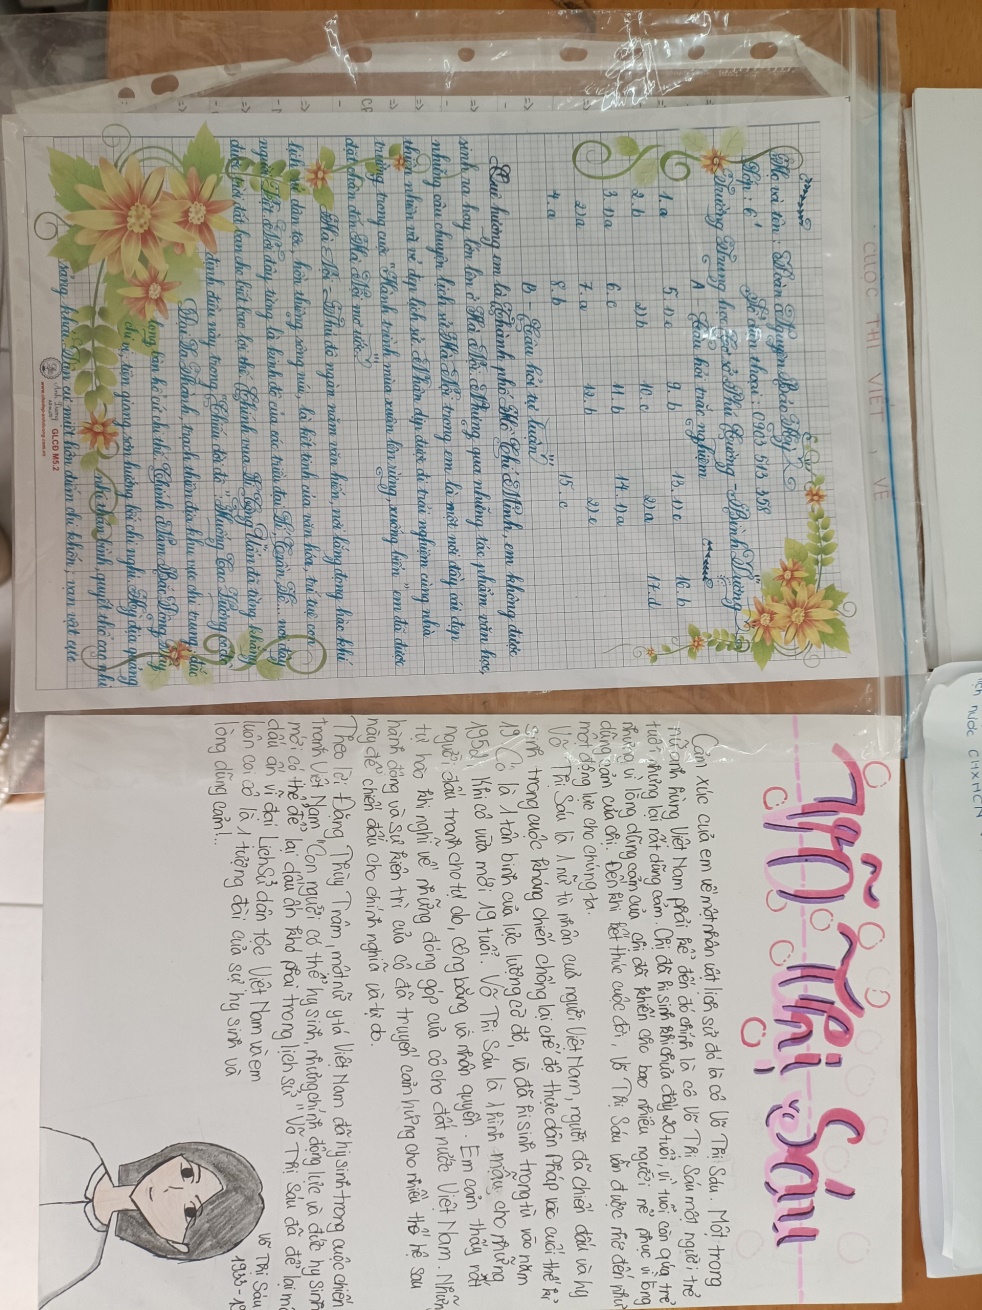 CUỘC THI VIẾT VỀ
Họ và tên : Phan Nguyễn Bảo Thy
Lớp : 6
Số điện thoại : 0905 513 358
Trường Trung học Cơ sở Phú Cường - Bình Dương
A - Câu hỏi trắc nghiệm
1. a 5. 1) c 9. b 13. 1) c 16. b
2. b 2) b 10. c 2) a 17. d
3. 1) a 6. c 11. b 14. 1) a
2) a 7. a 12. b 2) c
4. a 8. b 15. c
B - Câu hỏi tự luận
Quê hương em là Thành phố Hồ Chí Minh, em không được
sinh ra hay lớn lên ở Hà Nội. Nhưng qua những tác phẩm văn học,
những câu chuyện lịch sử Hà Nội trong em là một nơi đầy cái đẹp
thiên nhiên và vẻ đẹp lịch sử. Nhân dịp được đi trải nghiệm cùng nhà
trường trong cuộc "Hành trình mùa xuân lên rừng, xuống biển" em đã được
đặt chân đến Hà Nội mơ ước.
Hà Nội - Thủ đô ngàn năm văn hiến, nơi lắng đọng hào khí
lịch sử dân tộc, hồn thiêng sông núi, là kết tinh của văn hóa, trí tuệ con
người. Hà Nội đây từng là kinh đô của các triều đại Lý, Trần, Lê... nơi đây
được trời đất ban cho biết bao lợi thế. Chính vua Lý Công Uẩn đã từng khẳng
định điều này trong Chiếu dời đô "Huống
Đại La Thành, trạch thiên địa khu vực chi trung, đắc
long bàn hổ cứ chi thế. Chính Nam Bắc Đông Tây
chi vị, tiện giang sơn hướng bội chi nghi. Kỳ địa quảng
nhi thản bình, quyết thổ cao nhi
sảng khải. Dân cư miệt hôn điếm chi khốn, vạn vật cực
www.chuviet-anhduong.com.vn GLCD M5.2
Võ Thị Sáu
Cảm xúc của em về một nhân vật lịch sử đó là cô Võ Thị Sáu. Một trong
nữ anh hùng Việt Nam phải kể đến đó chính là cô Võ Thị Sáu một người trẻ
tuổi nhưng lại rất dũng cảm. Chị đã hi sinh khi chưa đầy 20 tuổi, vì tuổi còn quá trẻ
nhưng vì lòng dũng cảm của chị đã khiến cho bao nhiêu người nể phục vì lòng
dũng cảm của chị. Đến khi kết thúc cuộc đời, Võ Thị Sáu vẫn được nhớ đến như
một động lực cho chúng ta.
Võ Thị Sáu là 1 nữ tù nhân của người Việt Nam, người đã chiến đấu và hy
sinh trong cuộc kháng chiến chống lại chế độ thực dân Pháp vào cuối thế kỉ
19. Cô là 1 tân binh của lực lượng cờ đỏ, và đã hi sinh trong tù vào năm
1952, khi cô vừa mới 19 tuổi. Võ Thị Sáu là 1 hình mẫu cho những
người đấu tranh cho tự do, công bằng và nhân quyền. Em cảm thấy rất
tự hào khi nghĩ về những đóng góp của cô cho đất nước Việt Nam. Những
hành động và sự kiên trì của cô đã truyền cảm hứng cho nhiều thế hệ sau
này để chiến đấu cho chính nghĩa và tự do.
Theo lời Đặng Thùy Trâm, một nữ y tá Việt Nam đã hy sinh trong cuộc chiến
tranh Việt Nam "Con người có thể hy sinh, nhưng chính động lực và đức hy sinh
mới có thể để lại dấu ấn khó phai trong lịch sử" Võ Thị Sáu đã để lại một
dấu ấn vĩ đại Lịch Sử dân tộc Việt Nam và em
luôn coi cô là 1 tượng đài của sự hy sinh và
lòng dũng cảm!..
Võ Thị Sáu
nước CHXHCN